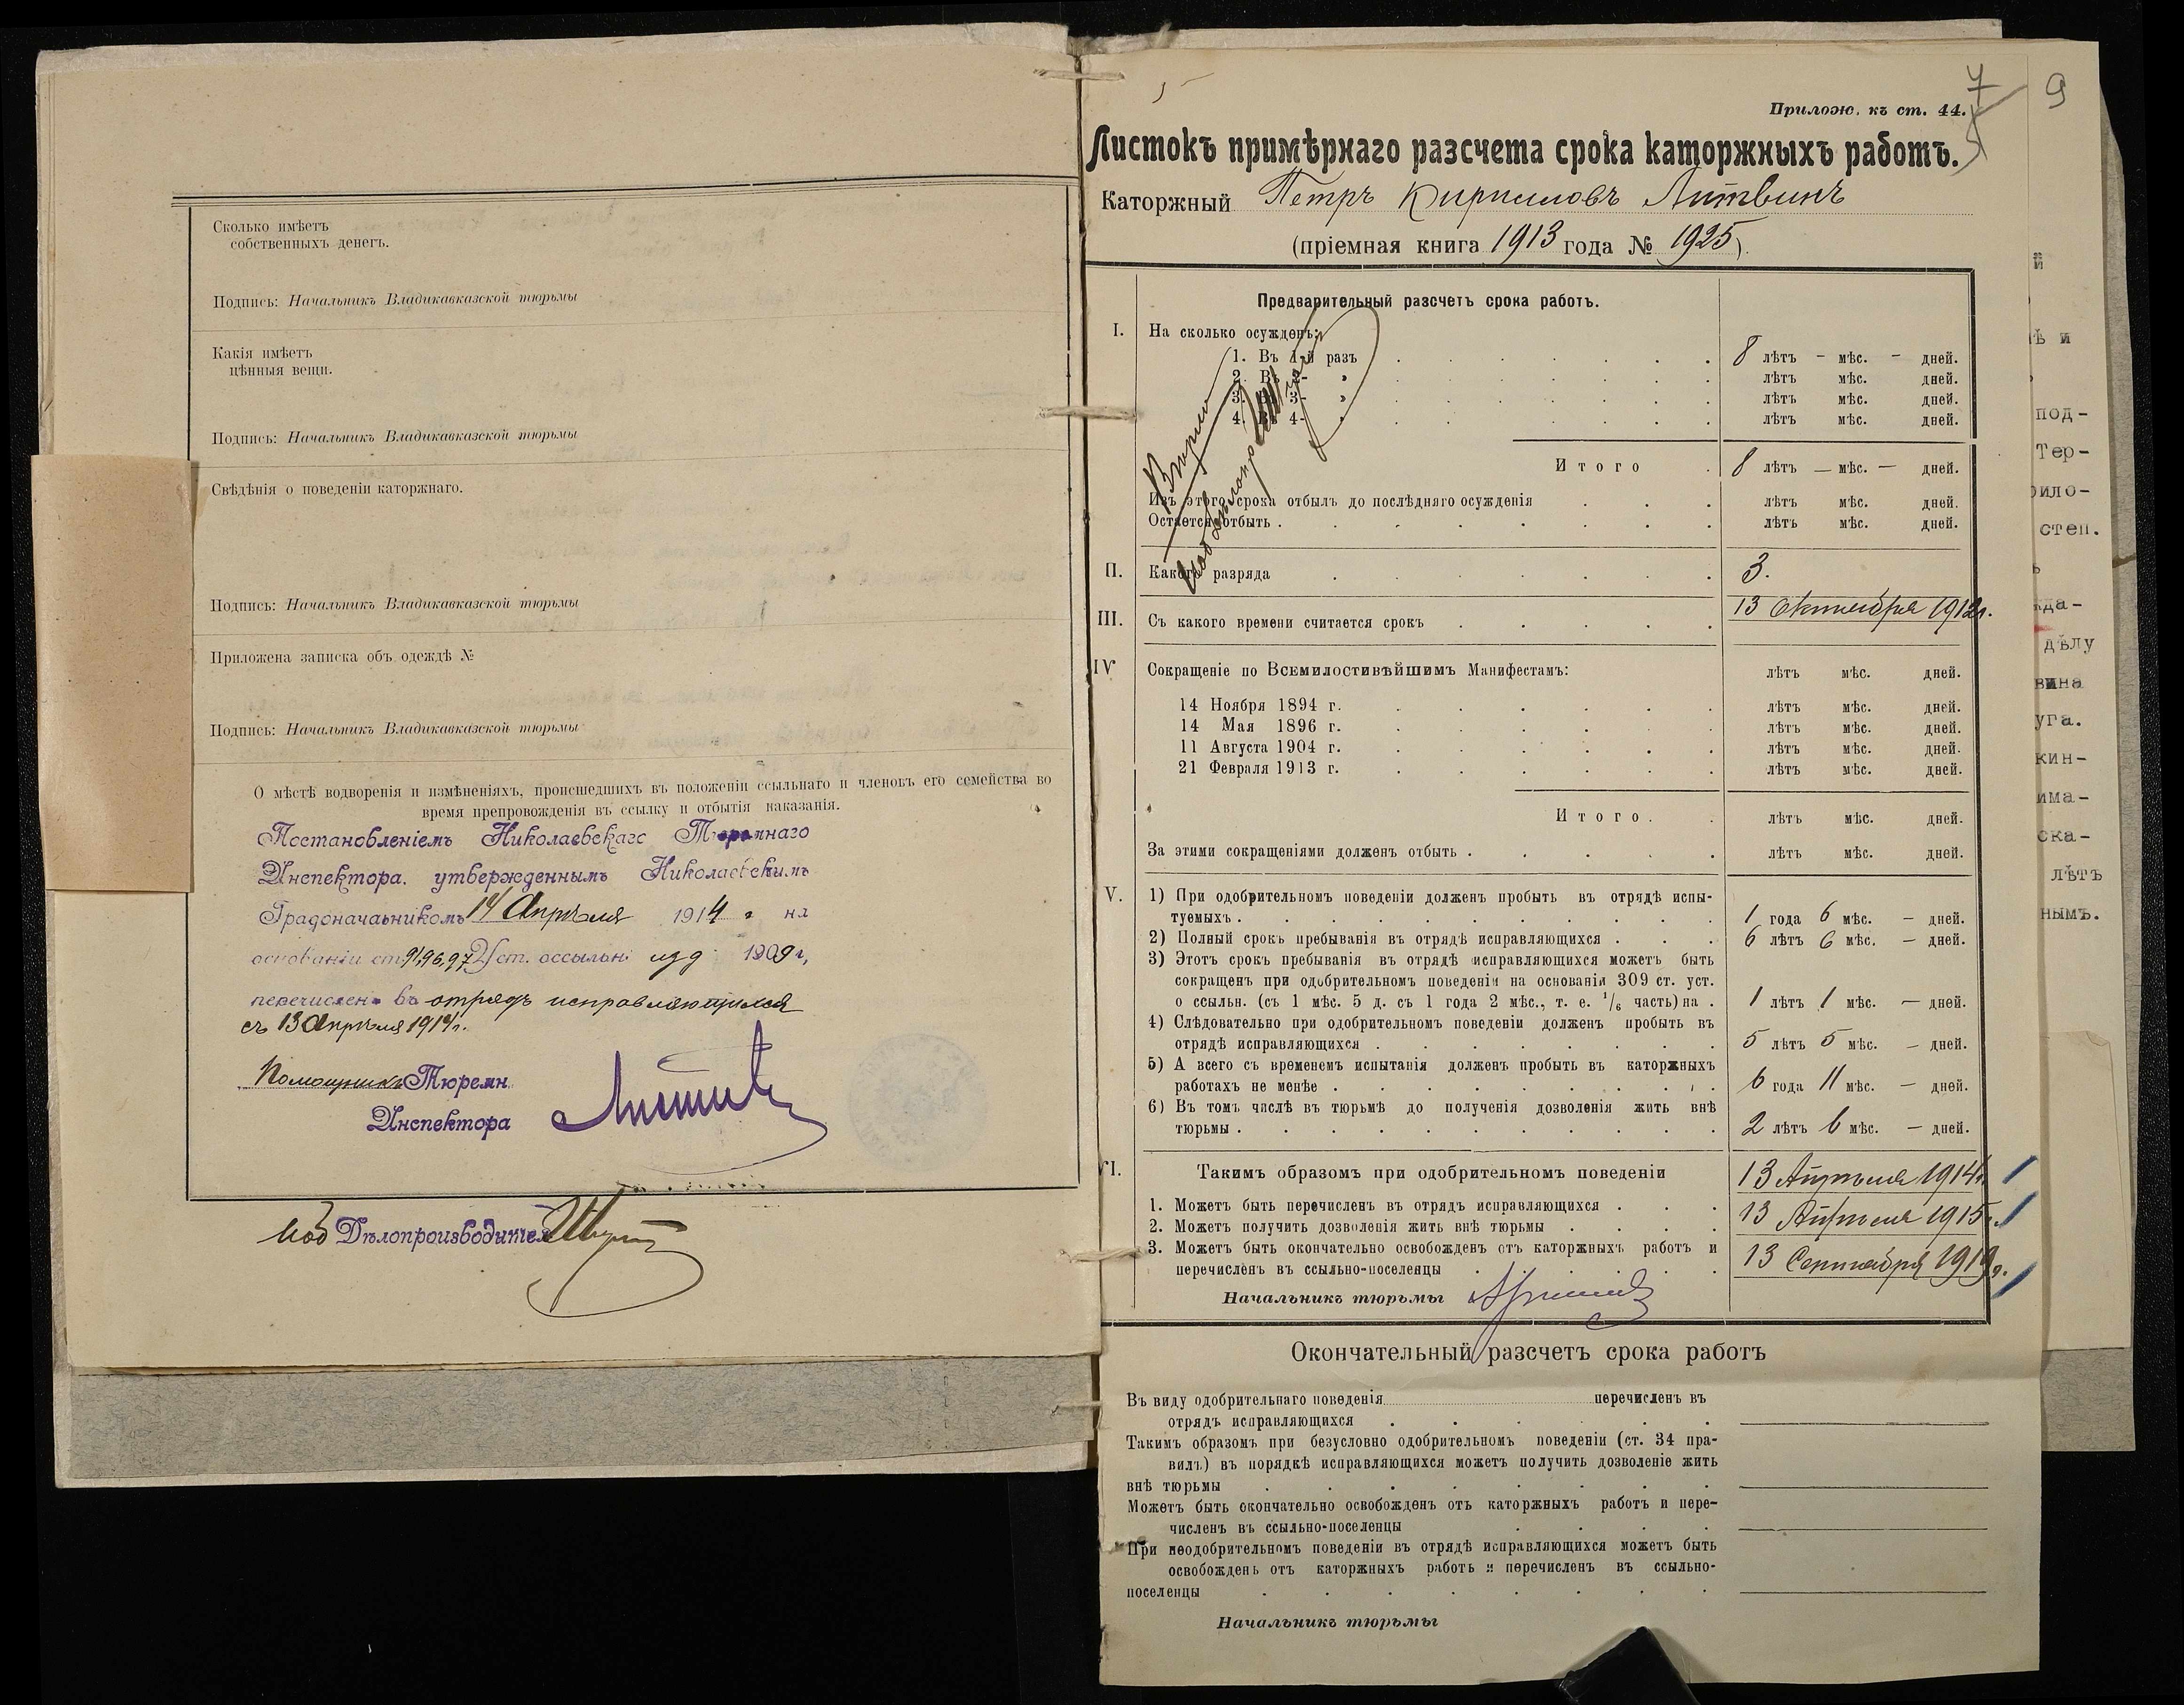 Сколько имѣетъ
собственныхъ денегъ.
Подпись: Начальникъ Владикавказской тюрьмы
Какія имѣетъ
цѣнныя вещи.
Подпись: Начальникъ Владикавказской тюрьмы
Свѣдѣнія о поведеніи каторжнаго.
Подпись: Начальникъ Владикавказской тюрьмы
Приложена записка объ одеждѣ №
Подпись: Начальникъ Владикавказской тюрьмы
О мѣстѣ водворенія и измѣненіяхъ, происшедшихъ въ положеніи ссыльнаго и членовъ его семейства во
время препровожденія въ ссылку и отбытія наказанія.
Постановленіемъ Николаевскаго Тюремнаго
Инспектора, утвержденнымъ Николаевскимъ
Градоначальникомъ 14 Апрѣля 1914 г на
основаніи ст. 94,96,97 Уст. о ссыльн: изд 1909 г,
перечисленъ въ отрядъ исправляющихся
съ 13 Апрѣля 1914 г.
Помощникъ Тюремн.
Инспектора
Иоб Дѣлопроизводителя
7
9
Прилож. къ ст. 44.
Листокъ примѣрнаго разсчета срока каторжныхъ работъ.
Каторжный Петръ Кирилловъ Литвинъ
(пріемная книга 1913 года № 1925).
Предварительный разсчетъ срока работъ.
I. На сколько осужденъ:
1. Въ 1-й разъ 8 лѣтъ - мѣс. - дней.
2. Въ 2- " лѣтъ мѣс. дней.
3. Въ 3- " лѣтъ мѣс. дней.
4. Въ 4- " лѣтъ мѣс. дней.
Вѣрно
Итого 8 лѣтъ — мѣс. — дней.
Изъ этого срока отбылъ до послѣдняго осужденія лѣтъ мѣс. дней.
Остается отбыть . лѣтъ мѣс. дней.
II. Какого разряда 3.
III. Съ какого времени считается срокъ 13 Октября 1912 г.
IV Сокращеніе по Всемилостивѣйшимъ Манифестамъ: лѣтъ мѣс. дней.
14 Ноября 1894 г. лѣтъ мѣс. дней.
14 Мая 1896 г. лѣтъ мѣс. дней.
11 Августа 1904 г. лѣтъ мѣс. дней.
21 Февраля 1913 г. лѣтъ мѣс. дней.
Итого. лѣтъ мѣс. дней.
За этими сокращеніями долженъ отбыть . лѣтъ мѣс. дней.
V. 1) При одобрительномъ поведеніи долженъ пробыть въ отрядѣ испы-
туемыхъ . 1 года 6 мѣс. — дней.
2) Полный срокъ пребыванія въ отрядѣ исправляющихся . 6 лѣтъ 6 мѣс. — дней.
3) Этотъ срокъ пребыванія въ отрядѣ исправляющихся можетъ быть
сокращенъ при одобрительномъ поведеніи на основаніи 309 ст. уст.
о ссыльн. (съ 1 мѣс. 5 д. съ 1 года 2 мѣс., т. е. 1/6 часть) на . 1 лѣтъ 1 мѣс. — дней.
4) Слѣдовательно при одобрительномъ поведеніи долженъ пробыть въ
отрядѣ исправляющихся . 5 лѣтъ 5 мѣс. — дней.
5) А всего съ временемъ испытанія долженъ пробыть въ каторжныхъ
работахъ не менѣе . 6 года 11 мѣс. — дней.
6) Въ томъ числѣ въ тюрьмѣ до полученія дозволенія жить внѣ
тюрьмы . 2 лѣтъ 6 мѣс. — дней.
VI. Такимъ образомъ при одобрительномъ поведеніи
1. Можетъ быть перечисленъ въ отрядъ исправляющихся . 13 Апрѣля 1914 г.
2. Можетъ получить дозволенія жить внѣ тюрьмы . 13 Апрѣля 1915 г.
3. Можетъ быть окончательно освобожденъ отъ каторжныхъ работъ и
перечисленъ въ ссыльно-поселенцы 13 Сентября 1919 г.
Начальникъ тюрьмы
Окончательный разсчетъ срока работъ
Въ виду одобрительнаго поведенія перечисленъ въ
отрядъ исправляющихся
Такимъ образомъ при безусловно одобрительномъ поведеніи (ст. 34 пра-
вилъ) въ порядкѣ исправляющихся можетъ получить дозволеніе жить
внѣ тюрьмы
Можетъ быть окончательно освобожденъ отъ каторжныхъ работъ и пере-
численъ въ ссыльно-поселенцы
При неодобрительномъ поведеніи въ отрядѣ исправляющихся можетъ быть
освобожденъ отъ каторжныхъ работъ и перечисленъ въ ссыльно-
поселенцы
Начальникъ тюрьмы
й
ѣ и
под-
Тер-
рило-
степ.
ь
да-
дѣлу
вина
уга.
кин-
има-
ска-
лѣтъ
нымъ.